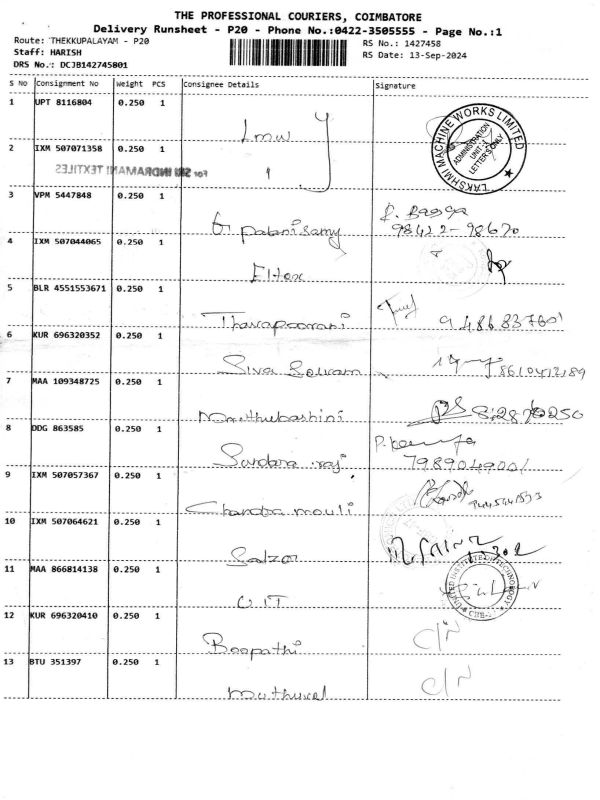 THE PROFESSIONAL COURIERS, COIMBATORE
Delivery Runsheet - P20 - Phone No.:0422-3505555 - Page No.:1
Route: THEKKUPALAYAM - P20 RS No.: 1427458
Staff: HARISH RS Date: 13-Sep-2024
DRS No.: DCJB142745801
S No Consignment No Weight PCS Consignee Details Signature
1 UPT 8116804 0.250 1 Lmw
LAKSHMI MACHINE WORKS LIMITED
ADMINISTRATION
UNIT-1
LETTERS ONLY
2 IXM 507071358 0.250 1
For SRI INDRAMANI TEXTILES
3 VPM 5447848 0.250 1 G. palanisamy 98422-98670
4 IXM 507044065 0.250 1 Eltex
5 BLR 4551553671 0.250 1 Tharapoorani
6 KUR 696320352 0.250 1 Siva Selvam
7 MAA 109348725 0.250 1
8 DDG 863585 0.250 1 Sundara raj 7989049001
9 IXM 507057367 0.250 1 Chandra mouli
10 IXM 507064621 0.250 1 Salzer
11 MAA 866814138 0.250 1 UIT
UNITED INSTITUTE OF TECHNOLOGY
12 KUR 696320410 0.250 1 Boopathi C/N
13 BTU 351397 0.250 1 Muthuvel C/N